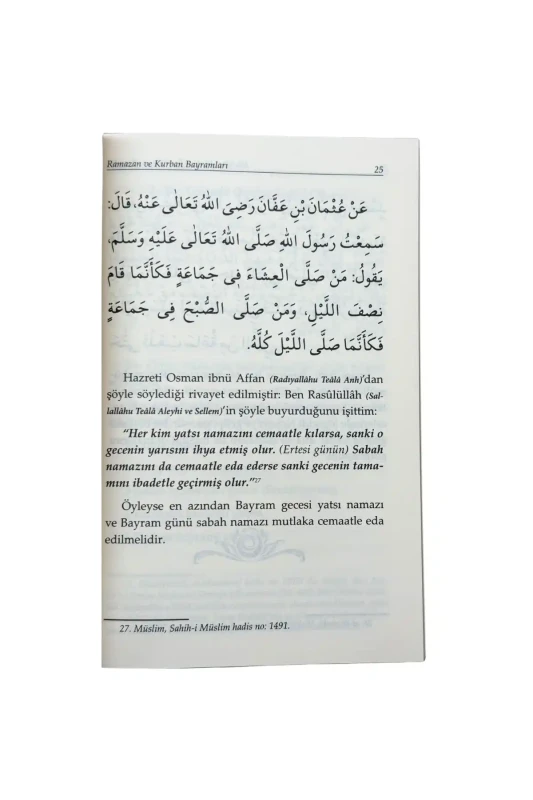 Ramazan ve Kurban Bayramları 25
عَنْ عُثْمَانَ بْنِ عَفَّانَ رَضِىَ اللهُ تَعَالٰى عَنْهُ، قَالَ:
سَمِعْتُ رَسُولَ اللهِ صَلَّى اللهُ تَعَالٰى عَلَيْهِ وَسَلَّمَ،
يَقُولُ: مَنْ صَلَّى الْعِشَاءَ فِى جَمَاعَةٍ فَكَأَنَّمَا قَامَ
نِصْفَ اللَّيْلِ، وَمَنْ صَلَّى الصُّبْحَ فِى جَمَاعَةٍ
فَكَأَنَّمَا صَلَّى اللَّيْلَ كُلَّهُ.
Hazreti Osman ibnü Affan (Radıyallâhu Teâlâ Anh)’dan
şöyle söylediği rivayet edilmiştir: Ben Rasûlüllâh (Sal-
lallâhu Teâlâ Aleyhi ve Sellem)’in şöyle buyurduğunu işittim:
“Her kim yatsı namazını cemaatle kılarsa, sanki o
gecenin yarısını ihya etmiş olur. (Ertesi günün) Sabah
namazını da cemaatle eda ederse sanki gecenin tama-
mını ibadetle geçirmiş olur.”27
Öyleyse en azından Bayram gecesi yatsı namazı
ve Bayram günü sabah namazı mutlaka cemaatle eda
edilmelidir.
27. Müslim, Sahih-i Müslim hadis no: 1491.